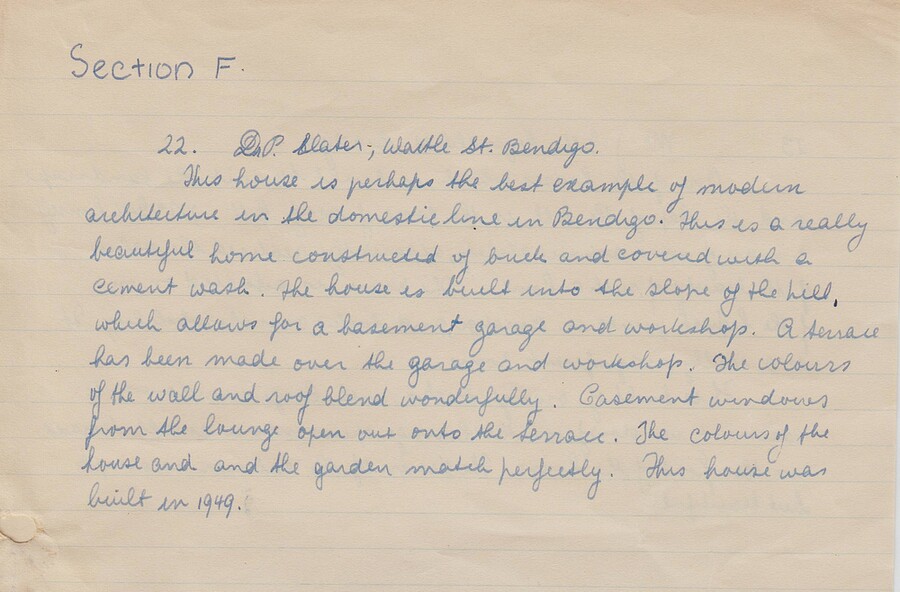 Section F.
22. Dr P. Slater, Wattle St. Bendigo.
This house is perhaps the best example of modern
architecture in the domestic line in Bendigo. This is a really
beautiful home constructed of brick and covered with a
cement wash. The house is built into the slope of the hill,
which allows for a basement garage and workshop. A terrace
has been made over the garage and workshop. The colours
of the wall and roof blend wonderfully. Casement windows
from the lounge open out onto the terrace. The colours of the
house and and the garden match perfectly. This house was
built in 1949.